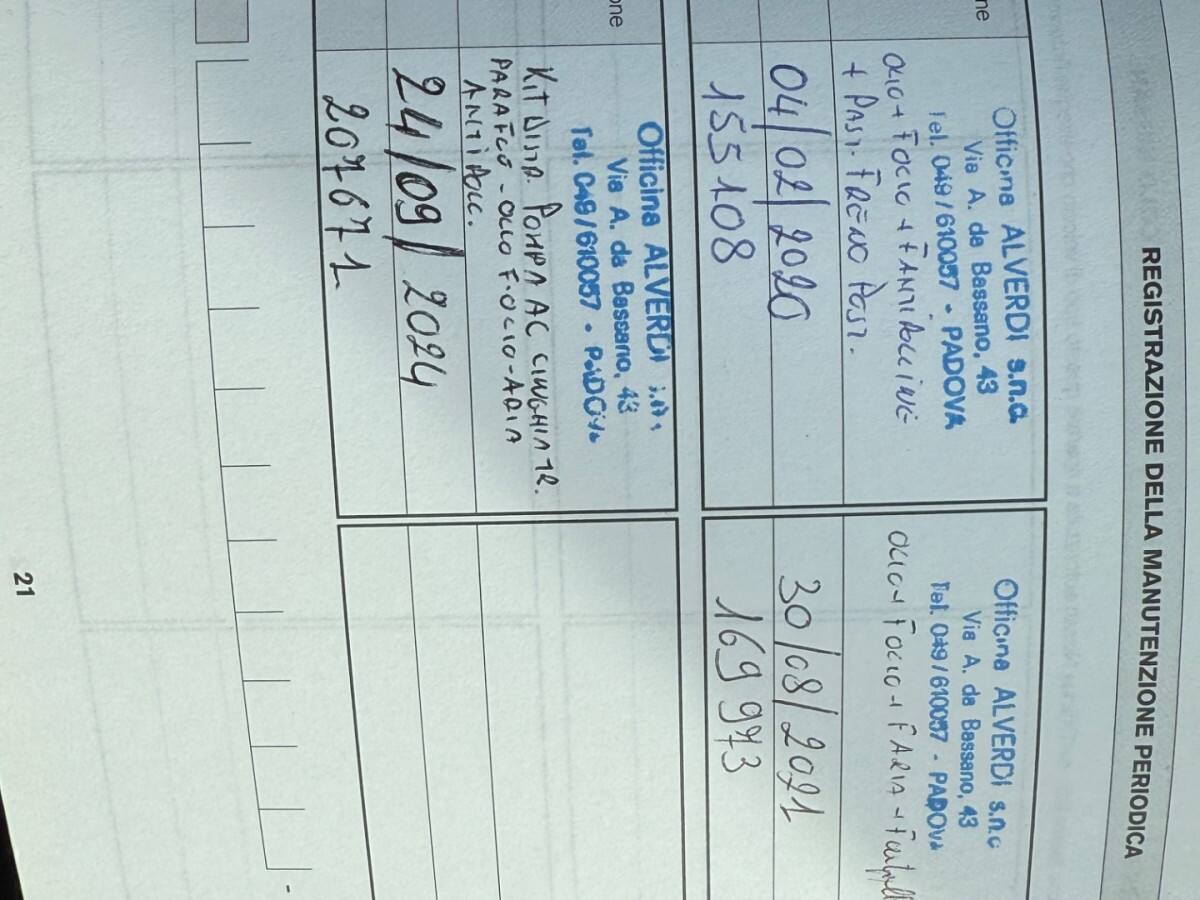 REGISTRAZIONE DELLA MANUTENZIONE PERIODICA
ne
Officina ALVERDI s.n.c
Via A. da Bassano, 43
Tel. 049/610057 - PADOVA
OLIO + FOLIO + FANTIPOLLINE
+ PAST. FRENO POST.
04/02/2020
155108
Officina ALVERDI s.n.c
Via A. da Bassano, 43
Tel. 049/610057 - PADOVA
OLIO + FOLIO + FARIA +
30/08/2021
169973
one
Officina ALVERDI
Via A. da Bassano, 43
Tel. 049/610057 - PADOVA
KIT DISTR. POMPA AC CINGHIA TR.
PARAFLU - OLIO FOLIO - ARIA
ANTIPOLL.
24/09/2024
207671
21